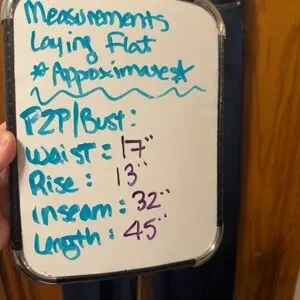 Measurements
Laying Flat
*Approximate*
P2P/Bust:
Waist: 17"
Rise: 13"
inseam: 32"
Length: 45"